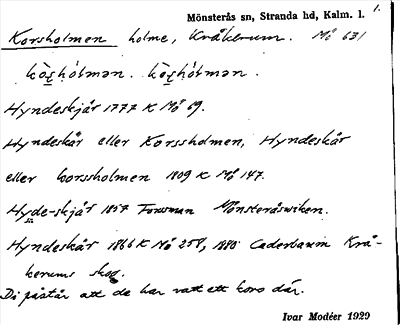 Mönsterås sn, Stranda hd, Kalm. l. 1.
Korsholmen holme, Kråkerum. Mö 631
Hyndeskjär 1777 K Mö 69.
Hyndeskär eller Korssholmen, Hyndeskär
eller korssholmen 1809 K Mö 147.
Hyde-skjär 1857 Forsman Mönsteråswiken.
Hyndeskär 1866 K Mö 258, 1880 Cederbaum Krå-
kerums skog.
De påstår att de har vatt ett kors där.
Ivar Modéer 1929